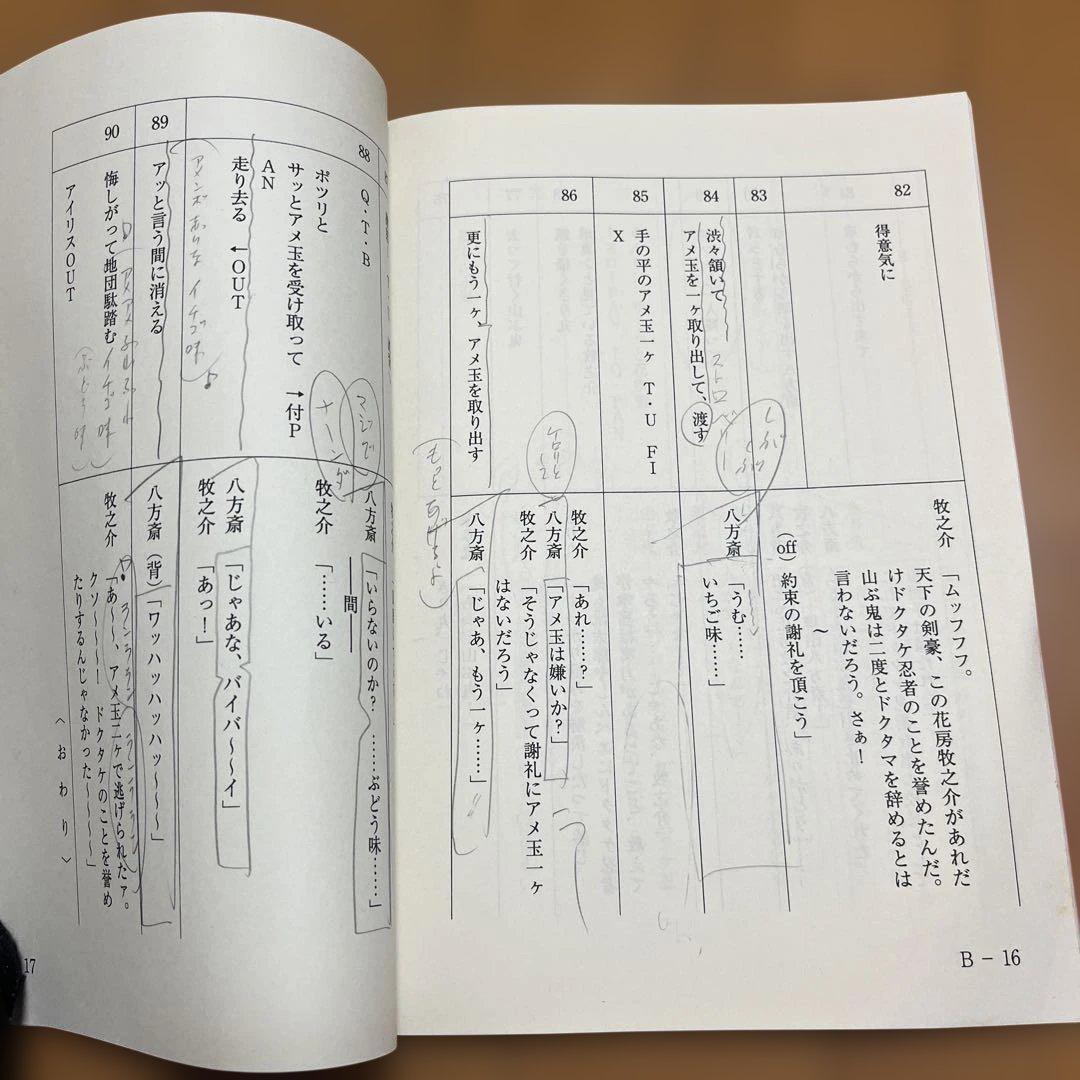 82
得意気に
牧之介
「ムッフフフ。
天下の剣豪、この花房牧之介があれだ
けドクタケ忍者のことを誉めたんだ。
山ぶ鬼は二度とドクタマを辞めるとは
言わないだろう。さぁ!
〜
83
(off) 約束の謝礼を頂こう」
84
渋々頷いて
アメ玉を一ヶ取り出して、渡す
ストロベリー
八方斎
「うむ……
いちご味……」
85
手の平のアメ玉一ヶ T・U FI
X
86
更にもう一ヶ、アメ玉を取り出す
ケロリと
牧之介
「あれ……?」
八方斎
「アメ玉は嫌いか?」
牧之介
「そうじゃなくって謝礼にアメ玉一ヶ
はないだろう」
八方斎
「じゃあ、もう一ヶ……」
もっとあげるよ
B − 16
88
Q・T・B
ポツリと
サッとアメ玉を受け取って →付P
AN
走り去る ←OUT
マジで
ナーンダ
八方斎
「いらないのか? ……ぶどう味……」
――間――
牧之介
「……いる」
八方斎
「じゃあな、バイバ〜〜イ」
牧之介
「あっ!」
89
アッと言う間に消える
八方斎(背)
「ワッハッハッハッ〜〜〜」
90
悔しがって地団駄踏む
アイリスOUT
イチゴ味
ぶどう味
牧之介
「あ〜〜、アメ玉二ヶで逃げられたァ。
クソ〜〜〜〜! ドクタケのことを誉め
たりするんじゃなかった〜〜〜〜」
〈おわり〉
17